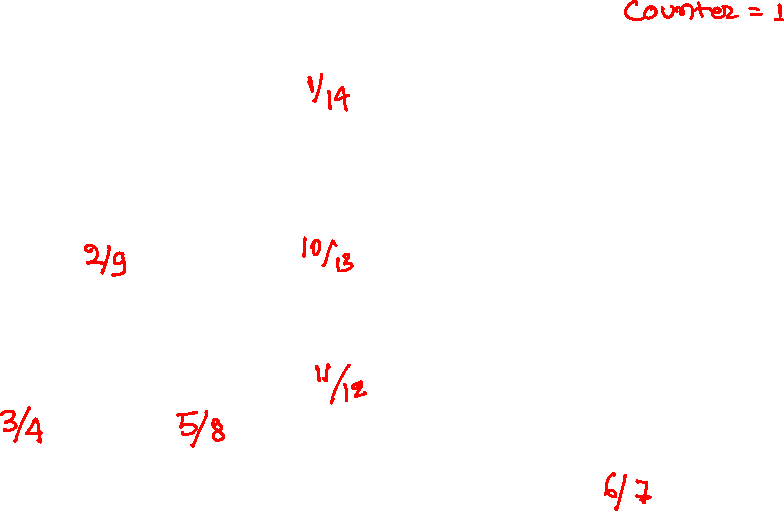 Counter = 1
1/14
2/9
10/13
11/12
3/4
5/8
6/7